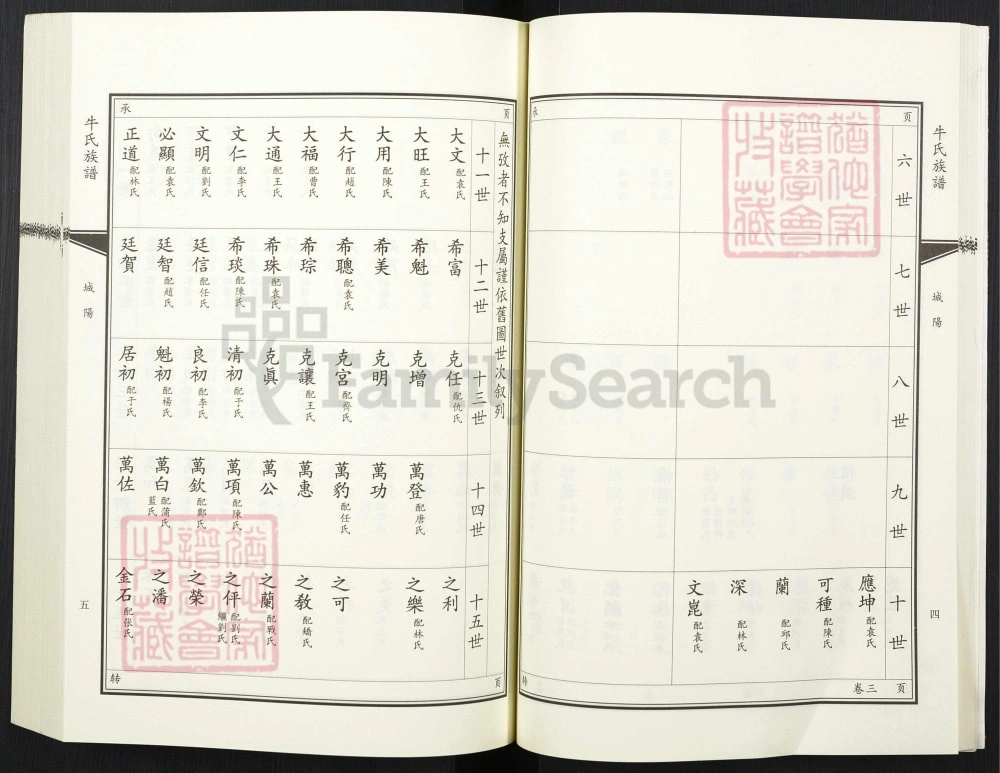 牛氏族譜
城陽
四
頁
六世
七世
八世
九世
十世
應坤 配袁氏
可種 配陳氏
蘭 配邱氏
深 配林氏
文崑 配袁氏
卷三 頁
承
转
牛氏族譜
城陽
五
承 頁
無攷者不知支屬謹依舊圖世次叙列
十一世
大文 配袁氏
大旺 配王氏
大用 配陳氏
大行 配趙氏
大福 配曹氏
大通 配王氏
文仁 配李氏
文明 配劉氏
必顯 配袁氏
正道 配林氏
十二世
希富
希魁
希美
希聰 配袁氏
希琮
希珠 配袁氏
希琰 配陳氏
廷信 配任氏
廷智 配趙氏
廷賀
十三世
克任 配仇氏
克增
克明
克宮 配齊氏
克讓 配王氏
克眞
清初 配于氏
良初 配李氏
魁初 配楊氏
居初 配于氏
十四世
萬登 配唐氏
萬功
萬豹 配任氏
萬惠
萬公
萬項 配陳氏
萬欽 配鄭氏
萬白 配蒲氏 藍氏
萬佐
十五世
之利
之樂 配林氏
之可
之教 配矯氏
之蘭 配戰氏
之伻 配劉氏 繼劉氏
之榮
之潘
金石 配张氏
转 頁
FamilySearch